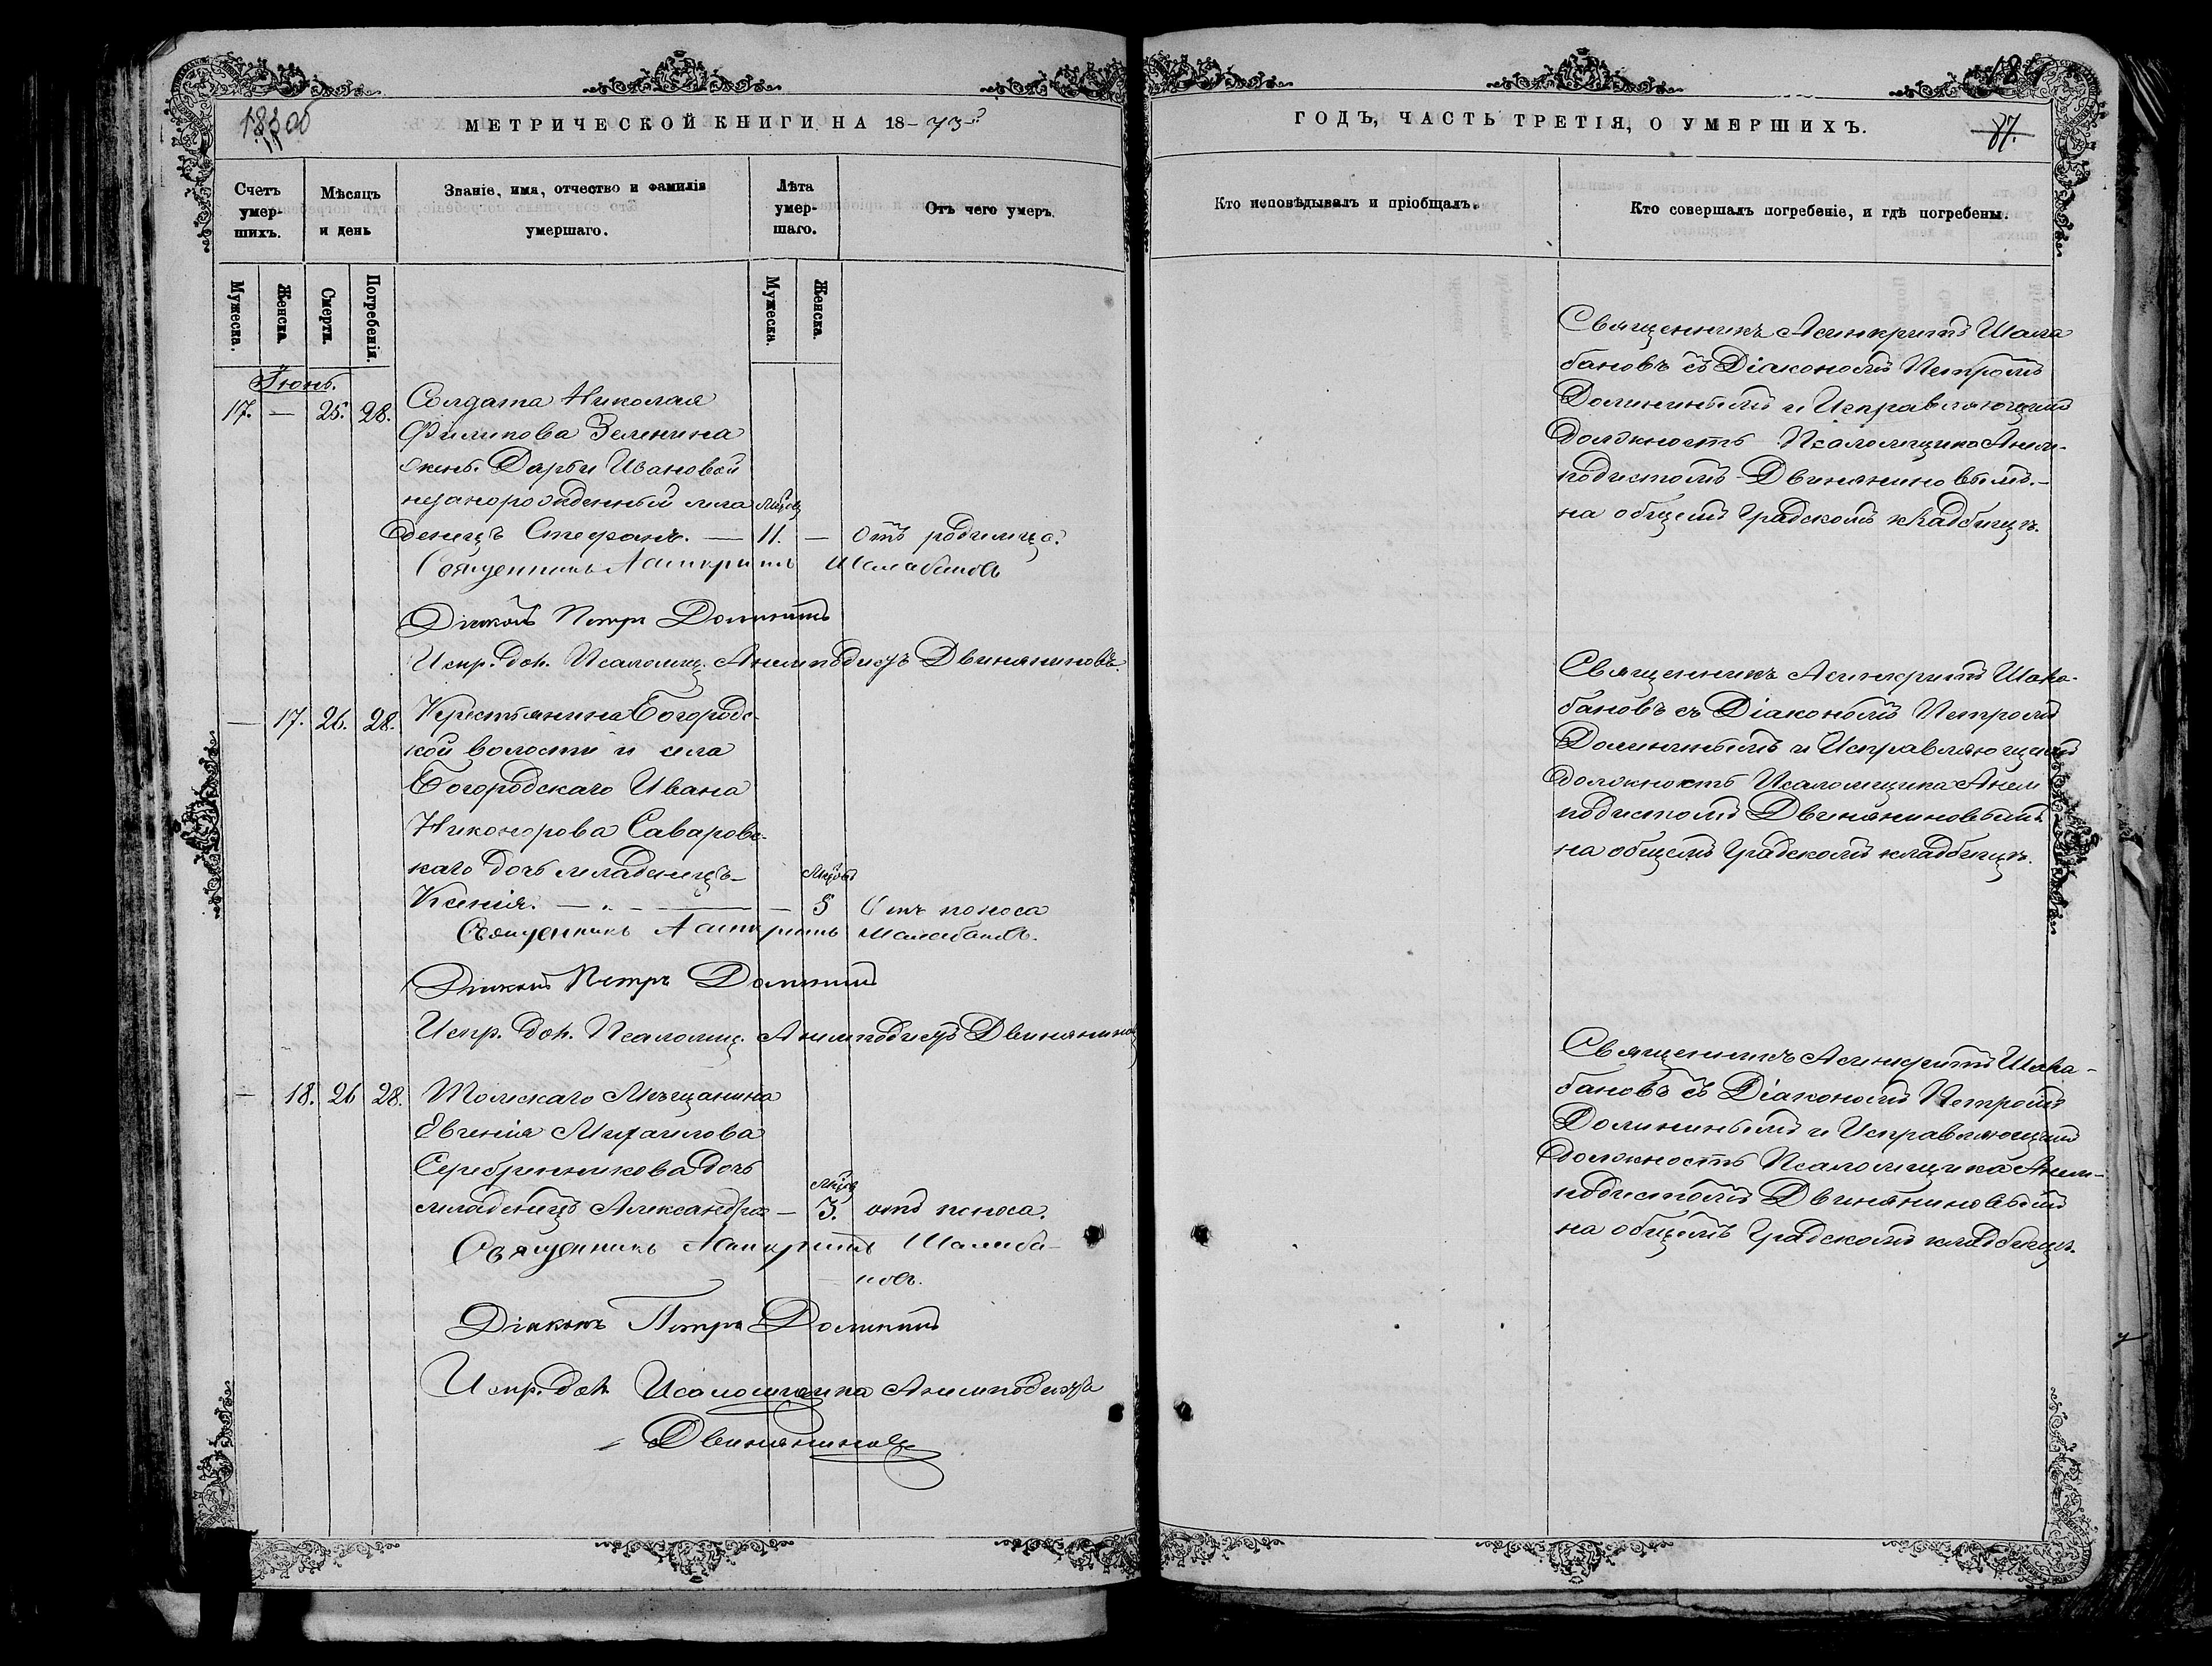 МЕТРИЧЕСКОЙ КНИГИ НА 18-73-й
Счетъ умер-шихъ.
Мѣсяцъ и день
Званіе, имя, отчество и фамилія умершаго.
Лѣта умер-шаго.
Отъ чего умеръ.
Мужеска.
Женска.
Смерти.
Погребенія.
Мужеска.
Женска.
Іюнь.
17. — 25. 28. Солдата Николая
Филипова Зеленина
жены Дарьи Ивановой
незаконорожденный мла
денецъ Стефанъ. — 11. — Отъ родимца.
Священникъ Асинкритъ Шалабановъ
Діаконъ Петръ Долининъ
Испр. дол. Псаломщ. Анемподистъ Двиняниновъ.
— 17. 26. 28. Крестьянина Богородс-
кой волости и села
Богородскаго Ивана
Никонорова Саваровс-
каго дочь младенецъ
Ксенія. — 5 Отъ поноса
Священникъ Асинкритъ Шалабановъ.
Діаконъ Петръ Долининъ
Испр. дол. Псаломщ. Анемподистъ Двиняниновъ
— 18. 26 28. Томскаго Мѣщанина
Евгенія Михаилова
Серебренникова дочь
младенецъ Александра — 3. отъ поноса.
Священникъ Асинкритъ Шалаба-
новъ.
Діаконъ Петръ Долининъ
Испр. дол. Псаломщика Анемподистъ
Двиняниновъ
ГОДЪ, ЧАСТЬ ТРЕТІЯ, О УМЕРШИХЪ.
87.
Кто исповѣдывалъ и пріобщалъ.
Кто совершалъ погребеніе, и гдѣ погребены.
Священникъ Асинкритъ Шала
бановъ съ Діакономъ Петромъ
Долининымъ и Исправляющимъ
должность Псаломщика Анем-
подистомъ Двиняниновымъ.-
на общемъ Градскомъ кладбищѣ.
Священникъ Асинкритъ Шала-
бановъ съ Діакономъ Петромъ
Долининымъ и Исправляющимъ
должность Псаломщика Анем
подистомъ Двиняниновымъ
на общемъ Градскомъ кладбищѣ.
Священникъ Асинкритъ Шала-
бановъ съ Діакономъ Петромъ
Долининымъ и Исправляющимъ
должность Псаломщика Анем-
подистомъ Двиняниновымъ
на общемъ Градскомъ кладбищѣ.